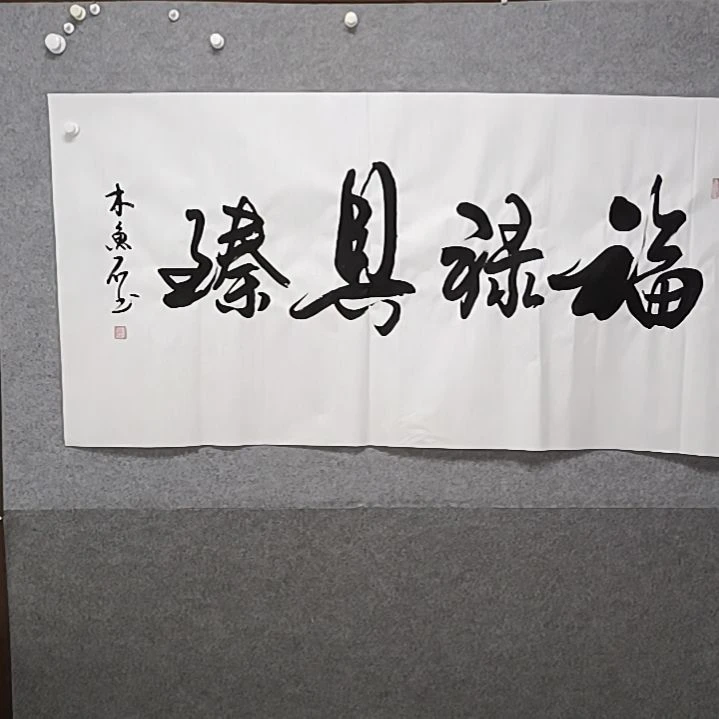 福禄具臻
木魚石书